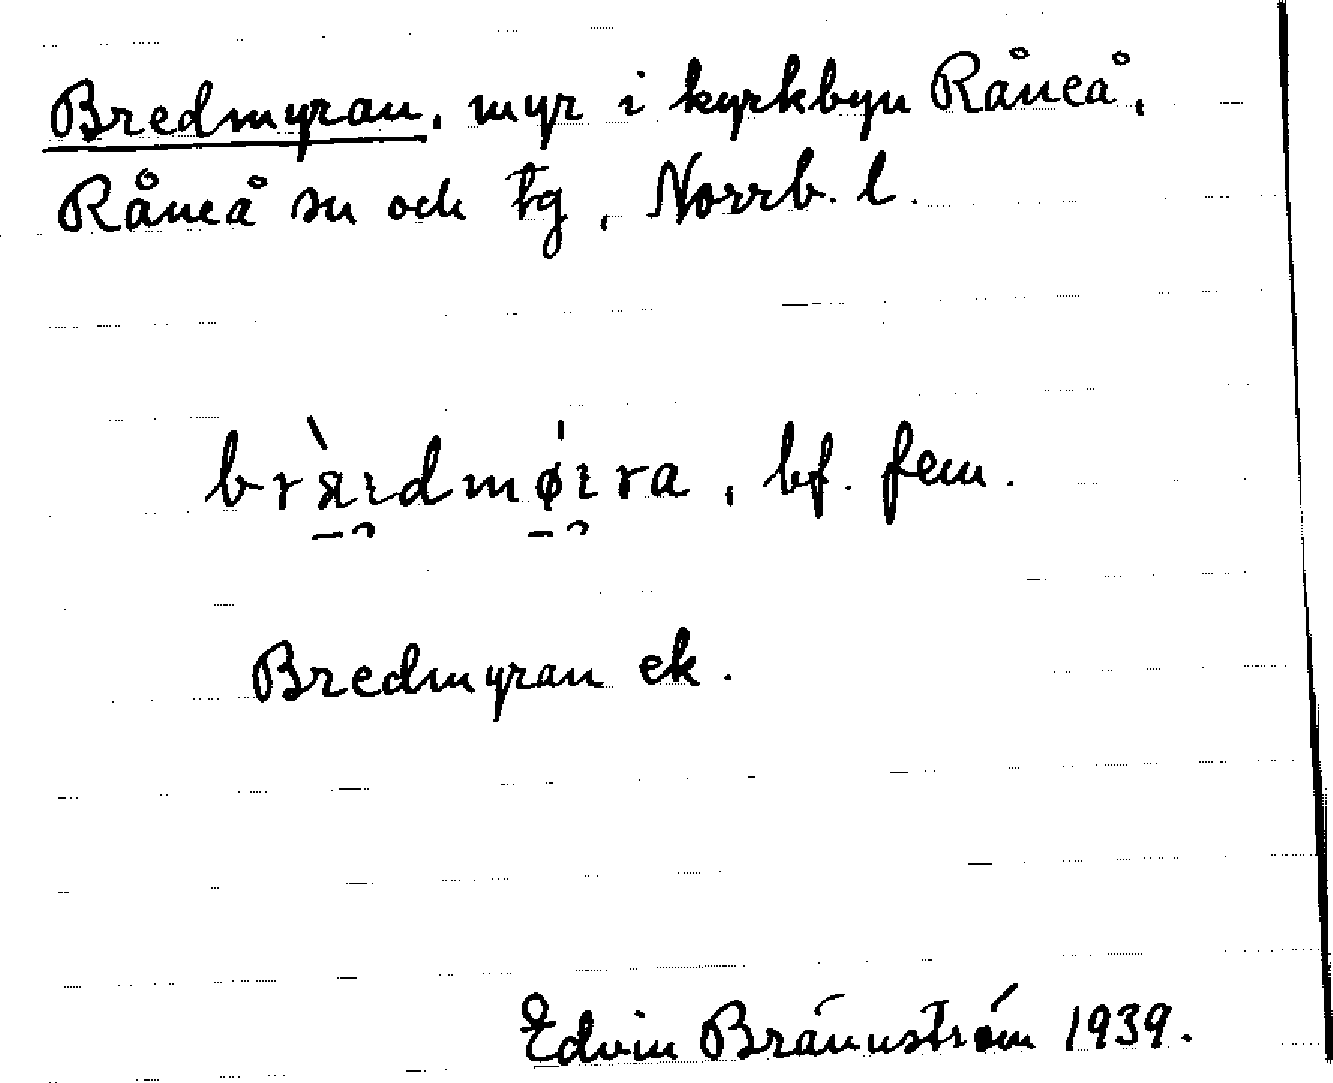 Bredmyran, myr i kyrkbyn Råneå,
Råneå sn och tg, Norrb. l.
bræ̀ɪdmǿɪra, bf. fem.
Bredmyran ek.
Edvin Brännström 1939.